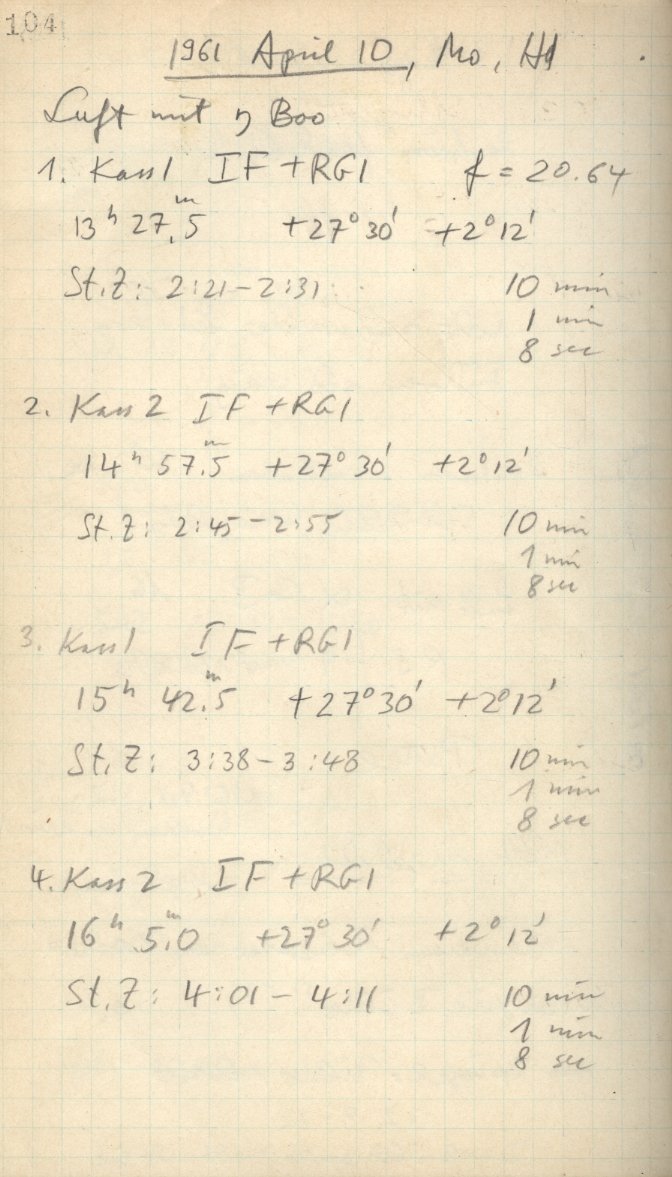 104
1961 April 10, Mo, Hd
Luft mit η Boo
1. Kass1 IF + RG1 f = 20.64
13ʰ 27ᵐ.5 +27° 30' +2° 12'
St.Z: 2:21 – 2:31 10 min
1 min
8 sec
2. Kass 2 IF + RG1
14ʰ 57ᵐ.5 +27° 30' +2° 12'
St.Z: 2:45 – 2:55 10 min
1 min
8 sec
3. Kass1 IF + RG1
15ʰ 42ᵐ.5 +27° 30' +2° 12'
St.Z: 3:38 – 3:48 10 min
1 min
8 sec
4. Kass 2 IF + RG1
16ʰ 5ᵐ.0 +27° 30' +2° 12'
St.Z: 4:01 – 4:11 10 min
1 min
8 sec